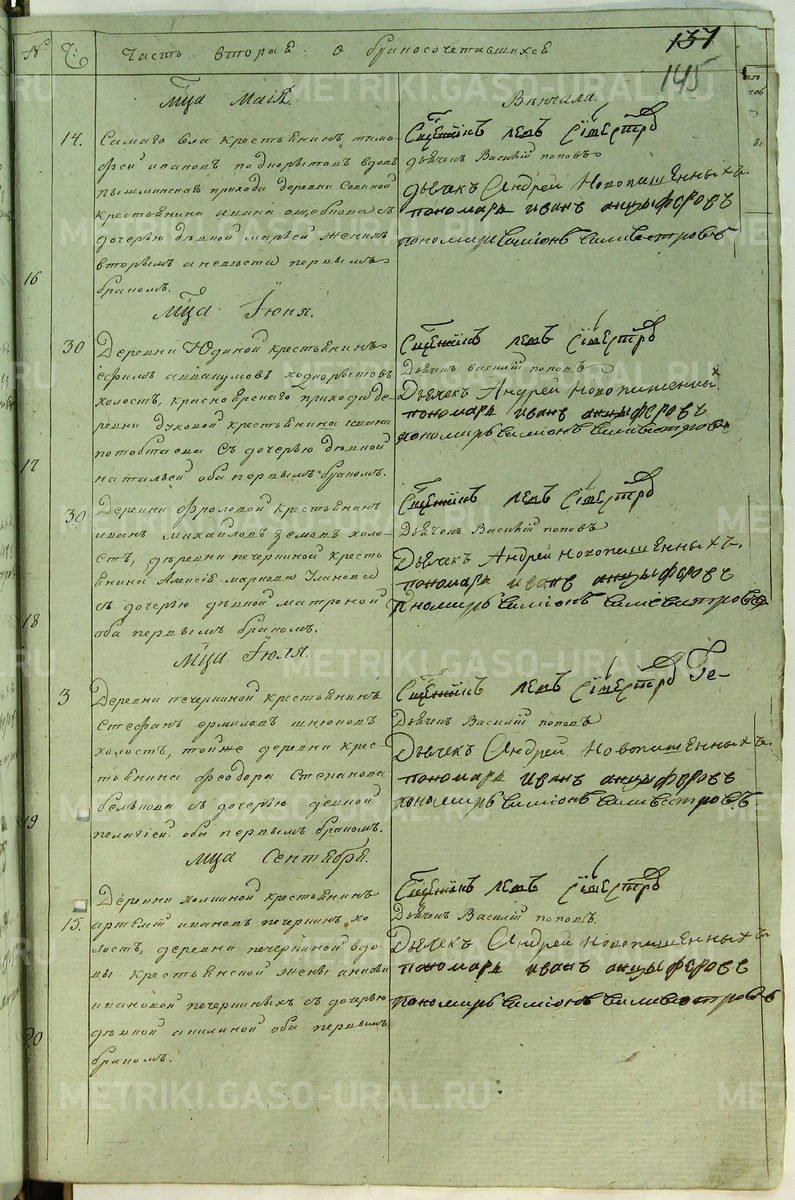 151
145
№ Ч: Часть вторая о браносочетавшихся
Мца Маія.
Венчали.
14. Самаго села крестьянинъ тимо-
фей ивановъ подкорытовъ вдовъ
пышминскаго прихода деревни
крестьянина ивана съ
дочерью девкой марьей женихъ
вторымъ а невеста первымъ
бракомъ.
Сщенникъ левъ
дьяконъ Василій поповъ
дьячекъ Андрей Новопашенныхъ
пономарь иванъ анцыферовъ
пономарь симіонъ силивестровъ
16
Мца Іюня.
30 Деревни Юдиной крестьянинъ
ефимъ аввакумовъ подкорытовъ
холостъ, красноярскаго прихода де-
ревни духовой крестьянина ивана
съ дочерью девкой
натальей оба первымъ бракомъ.
Сщенникъ левъ
Дьяконъ василій поповъ
Дьячекъ Андрей Новопашенныхъ
пономарь иванъ анцыферовъ
пономарь симіонъ силивестровъ
17
30 Деревни фроловой крестьянинъ
иванъ михайловъ земовъ холо-
стъ, деревни печеркиной кресть-
янина Алексія маркова
съ дочерью девкой матроной
оба первымъ бракомъ.
Сщенникъ левъ
Дьяконъ Василій поповъ
Дьячекъ Андрей Новопашенныхъ
пономарь иванъ анцыферовъ
пономарь симіонъ силивестровъ
18
Мца Іюля.
3 Деревни печеркиной крестьянинъ
Стефанъ ермиловъ
холостъ, тойже деревни крес-
тьянина феодора Степанова
белькова съ дочерью девкой
пелагіей оба первымъ бракомъ.
Сщенникъ левъ
Дьяконъ Василій поповъ
Дьячекъ Андрей Новопашенныхъ
пономарь иванъ анцыферовъ
пономарь симіонъ силивестровъ
19
мца Сентября.
15. Деревни холкиной крестьянинъ
артемій ивановъ печеркинъ хо-
лостъ, деревни печеркиной вдо-
вы крестьянской жены анны
ивановой печеркиныхъ съ дочерью
девкой акилиной оба первымъ
бракомъ.
Сщенникъ левъ
Дьяконъ Василій поповъ
Дьячекъ Андрей Новопашенныхъ
пономарь иванъ анцыферовъ
пономарь симіонъ силивестровъ
20
METRIKI.GASO-URAL.RU